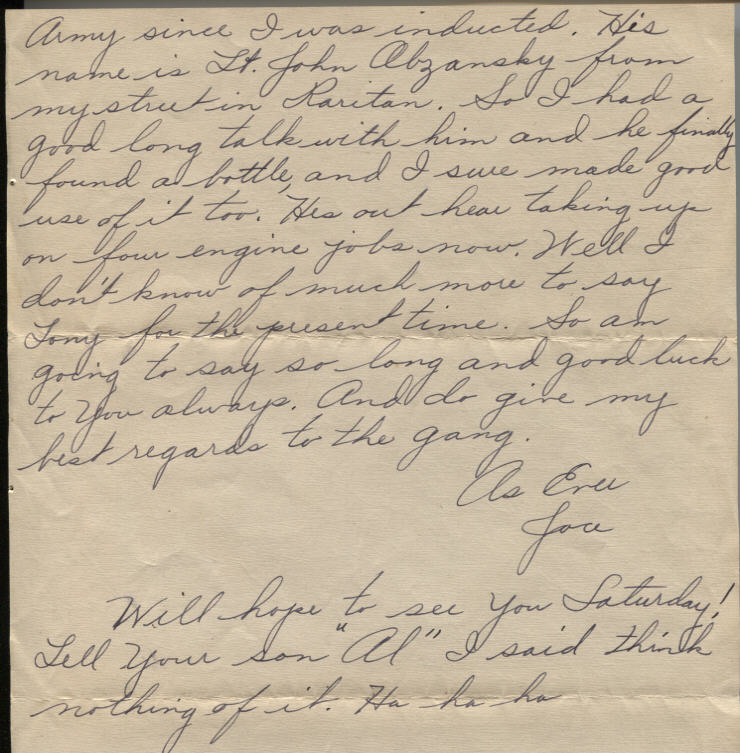 Army since I was inducted. His
name is Lt. John Abzansky from
my street in Raritan. So I had a
good long talk with him and he finally
found a bottle, and I sure made good
use of it too. Hes out hear taking up
on four engine jobs now. Well I
don't know of much more to say
Tony for the present time. So am
going to say so long and good luck
to You always. And do give my
best regards to the gang.
As Ever
Joe
Will hope to see You Saturday!
Tell Your son "Al" I said think
nothing of it. Ha ha ha